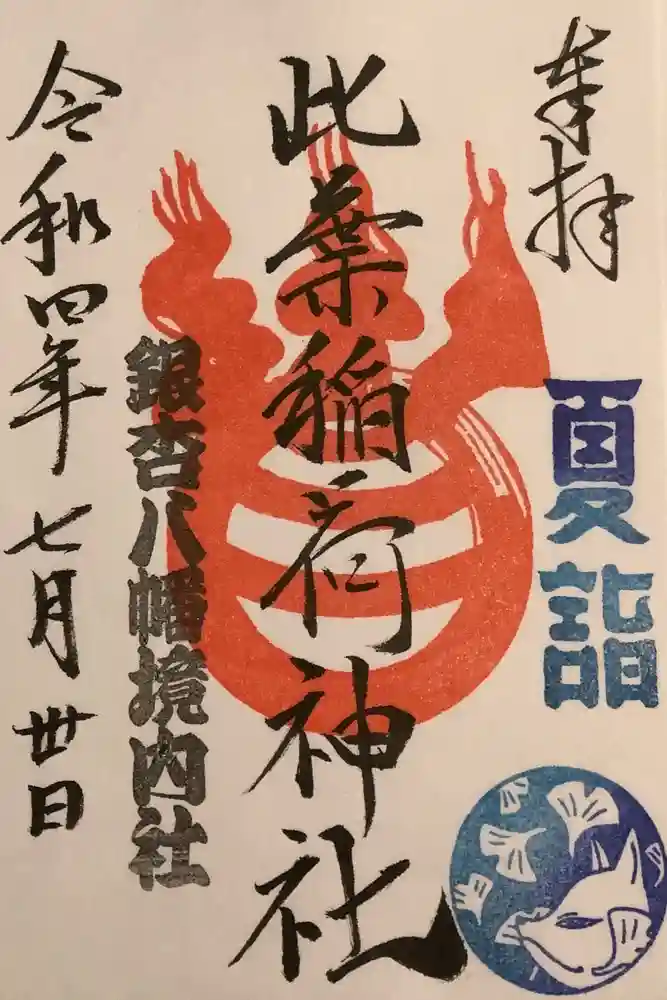 奉拝
夏詣
此葉稲荷神社
銀杏八幡境内社
令和四年七月丗日